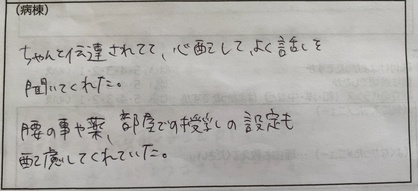 (病棟)
ちゃんと伝達されてて、心配して、よく話しを
聞いてくれた。
腰の事や薬、部屋での授乳しの設定も
配慮してくれていた。